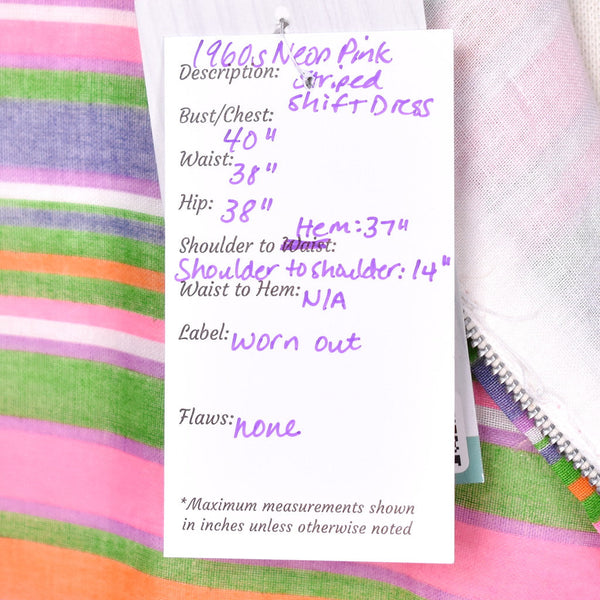 1960s Neon Pink
Description: Striped
Shift Dress
Bust/Chest:
40"
Waist:
38"
Hip: 38"
Hem: 37"
Shoulder to Waist:
Shoulder to shoulder: 14"
Waist to Hem: N/A
Label: worn out
Flaws: none
*Maximum measurements shown
in inches unless otherwise noted